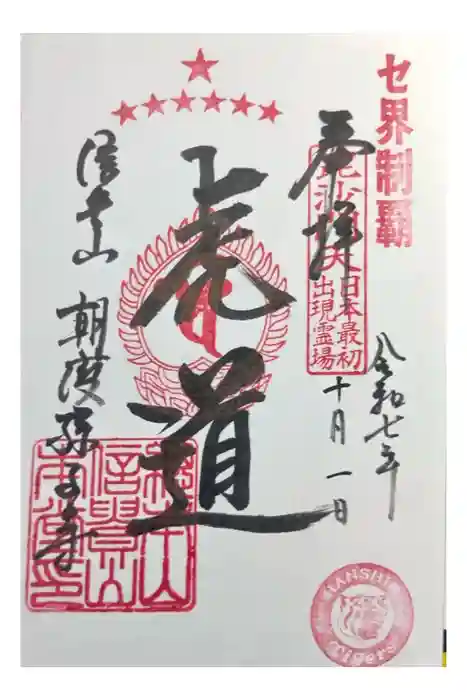 セ界制覇
奉拝
毘沙門天
日本最初
出現霊場
令和七年
十月一日
虎道
信貴山 朝護孫子寺
HANSHIN
Tigers